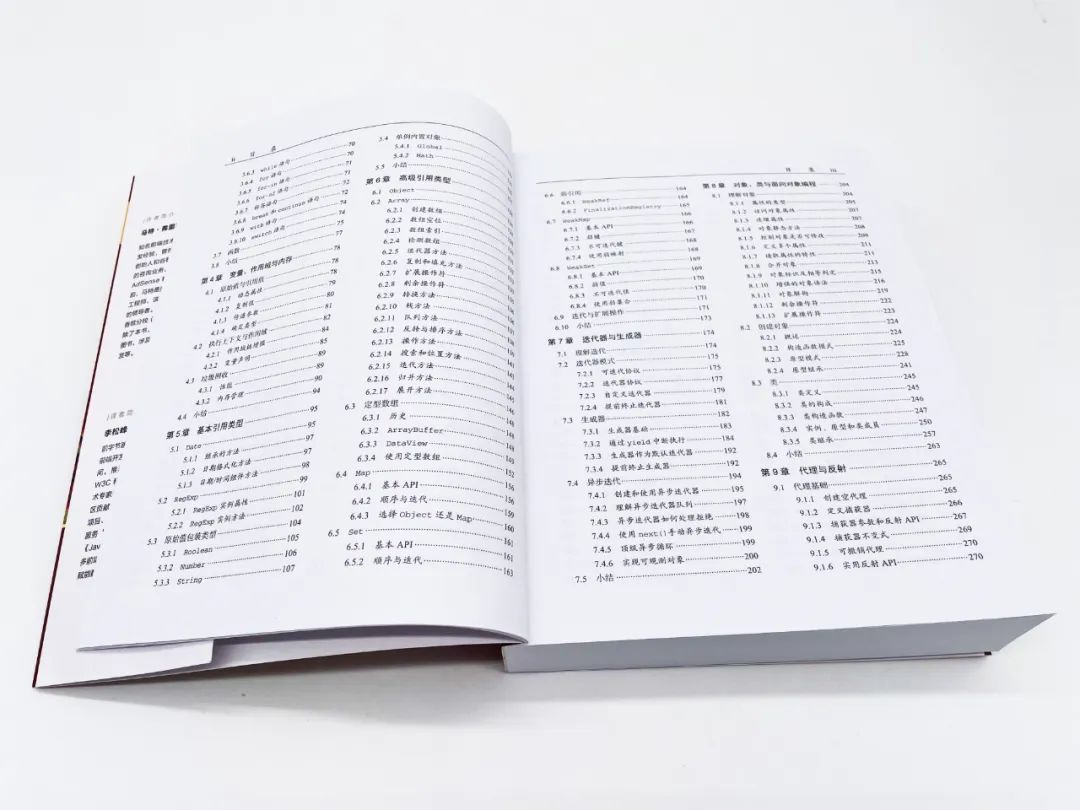 作者简介
马特·弗里
知名前端技术
发经验，曾
创始人和首
的咨询业务，
AdSense
前，马特是
工程师，谷
的领导者。
普敦分校
除了本书，
图书，涉及
发等。
译者简
李松峰
前字节跳
前端开发
问、推
W3C
术专家
区贡献
项目、
面资
《Jav
多部
赋能
ii 目 录
3.6.3 while 语句 70
3.6.4 for 语句 70
3.6.5 for-in 语句 71
3.6.6 for-of 语句 71
3.6.7 标签语句 72
3.6.8 break 和 continue 语句 72
3.6.9 with 语句 74
3.6.10 switch 语句 75
3.7 函数 77
3.8 小结 78
第 4 章 变量、作用域与内存 78
4.1 原始值与引用值 78
4.1.1 动态属性 79
4.1.2 复制值 80
4.1.3 传递参数 81
4.1.4 确定类型 82
4.2 执行上下文与作用域 82
4.2.1 作用域链增强 84
4.2.2 变量声明 85
4.3 垃圾回收 89
4.3.1 性能 89
4.3.2 内存管理 90
4.4 小结 94
第 5 章 基本引用类型 95
5.1 Date 95
5.1.1 继承的方法 97
5.1.2 日期格式化方法 97
5.1.3 日期/时间组件方法 98
5.2 RegExp 99
5.2.1 RegExp 实例属性 101
5.2.2 RegExp 实例方法 102
5.3 原始值包装类型 104
5.3.1 Boolean 105
5.3.2 Number 106
5.3.3 String 107
5.4 单例内置对象
5.4.1 Global
5.4.2 Math
5.5 小结
第 6 章 高级引用类型
6.1 Object
6.2 Array
6.2.1 创建数组
6.2.2 数组空位
6.2.3 数组索引
6.2.4 检测数组
6.2.5 迭代器方法
6.2.6 复制和填充方法
6.2.7 扩展操作符
6.2.8 剩余操作符
6.2.9 转换方法
6.2.10 栈方法
6.2.11 队列方法
6.2.12 反转与排序方法
6.2.13 操作方法
6.2.14 搜索和位置方法
6.2.15 迭代方法
6.2.16 归并方法
6.2.17 展开方法
6.3 定型数组
6.3.1 历史
6.3.2 ArrayBuffer
6.3.3 DataView
6.3.4 使用定型数组
6.4 Map 152
6.4.1 基本 API 156
6.4.2 顺序与迭代 159
6.4.3 选择 Object 还是 Map 160
6.5 Set 161
6.5.1 基本 API 161
6.5.2 顺序与迭代 163
目 录 iii
6.6 弱引用 164
6.6.1 WeakRef 164
6.6.2 FinalizationRegistry 165
6.7 WeakMap 166
6.7.1 基本 API 166
6.7.2 弱键 167
6.7.3 不可迭代键 168
6.7.4 使用弱映射 168
6.8 WeakSet 169
6.8.1 基本 API 169
6.8.2 弱值 170
6.8.3 不可迭代值 170
6.8.4 使用弱集合 171
6.9 迭代与扩展操作 171
6.10 小结 173
第 7 章 迭代器与生成器 174
7.1 理解迭代 174
7.2 迭代器模式 175
7.2.1 可迭代协议 175
7.2.2 迭代器协议 177
7.2.3 自定义迭代器 179
7.2.4 提前终止迭代器 181
7.3 生成器 182
7.3.1 生成器基础 183
7.3.2 通过 yield 中断执行 184
7.3.3 生成器作为默认迭代器 192
7.3.4 提前终止生成器 192
7.4 异步迭代 194
7.4.1 创建和使用异步迭代器 195
7.4.2 理解异步迭代器队列 197
7.4.3 异步迭代器如何处理拒绝 198
7.4.4 使用 next()手动异步迭代 199
7.4.5 顶级异步循环 199
7.4.6 实现可观测对象 200
7.5 小结 202
第 8 章 对象、类与面向对象编程 204
8.1 理解对象 204
8.1.1 属性的类型 205
8.1.2 访问对象属性 207
8.1.3 迭代属性 207
8.1.4 对象静态方法 208
8.1.5 控制对象是否可修改 209
8.1.6 定义多个属性 211
8.1.7 读取属性的特性 211
8.1.8 合并对象 213
8.1.9 对象标识及相等判定 215
8.1.10 增强的对象语法 216
8.1.11 对象解构 219
8.1.12 剩余操作符 222
8.1.13 扩展操作符 223
8.2 创建对象 224
8.2.1 概述 224
8.2.2 构造函数模式 225
8.2.3 原型模式 228
8.2.4 原型继承 241
8.3 类 245
8.3.1 类定义 245
8.3.2 类的构成 246
8.3.3 类构造函数 247
8.3.4 实例、原型和类成员 250
8.3.5 类继承 257
8.4 小结 263
第 9 章 代理与反射 265
9.1 代理基础 265
9.1.1 创建空代理 265
9.1.2 定义捕获器 266
9.1.3 捕获器参数和反射 API 267
9.1.4 捕获器不变式 269
9.1.5 可撤销代理 270
9.1.6 实用反射 API 270